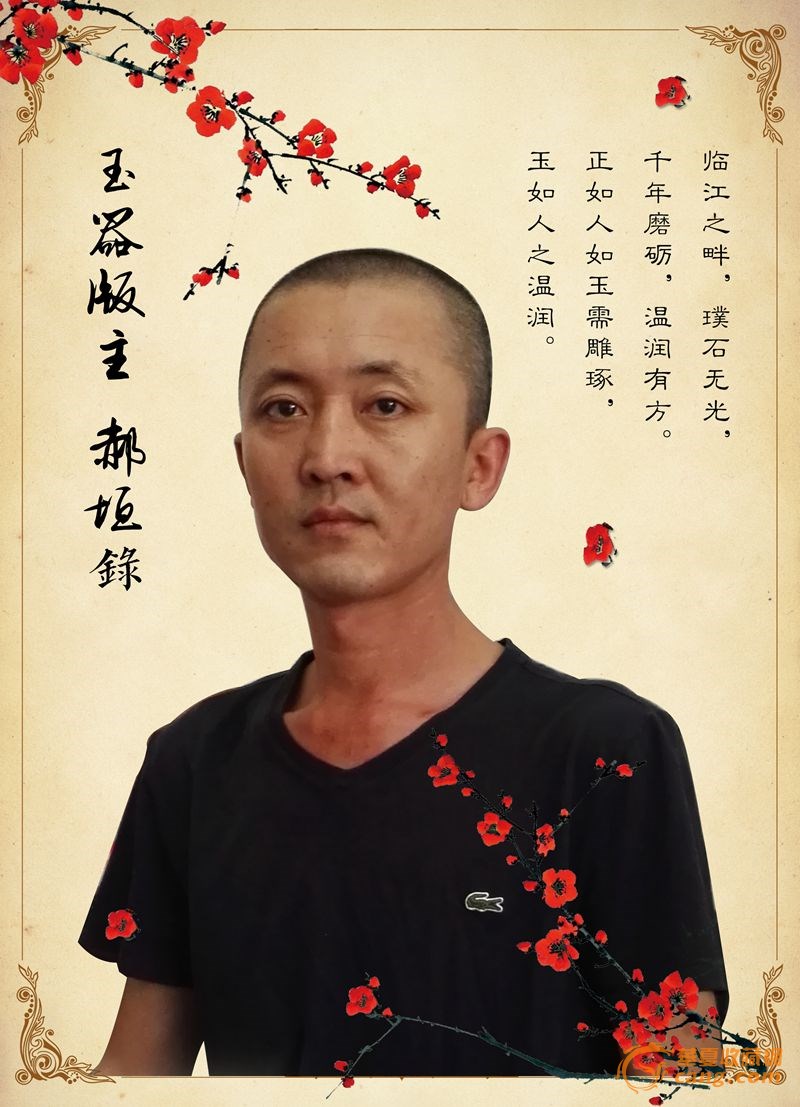 临江之畔，璞石无光，
千年磨砺，温润有方。
正如人如玉需雕琢，
玉如人之温润。
玉器版主 郝垣錄
华夏收藏网
cjug.com